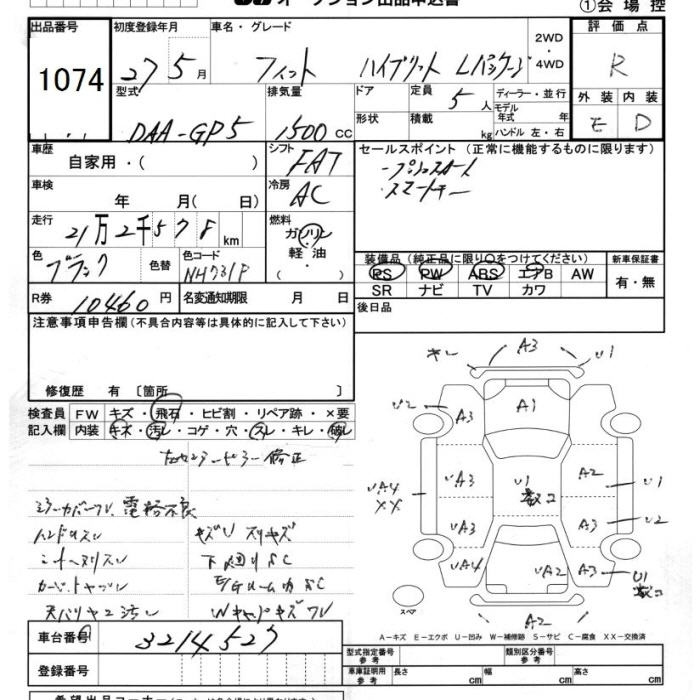 オークション出品申込書
①会場控
出品番号 初度登録年月 車名・グレード 評価点
1074 27 5月 フィット ハイブリット Lパッケージ 2WD・4WD R
型式 排気量 ドア 定員 5人 ディーラー・並行 外装 内装
DAA-GP5 1500cc 形状 積載 kg モデル年式 年 ハンドル 左・右 E D
車歴 自家用・( ) シフト FAT セールスポイント (正常に機能するものに限ります)
プッシュスタート
スマートキー
車検 年 月( 日) 冷房 AC
走行 21万2千578km 燃料 ガソリン・軽油・( )
色 ブラック 色替 色コード NH731P
装備品 (純正品に限り○をつけてください) 新車保証書
PS PW ABS エアB AW 有・無
SR ナビ TV カワ
R券 10460円 名変通知期限 月 日 後日品
注意事項申告欄(不具合内容等は具体的に記入して下さい)
修復歴 有 〔箇所 〕
検査員 FW キズ・飛石・ヒビ割・リペア跡・×要
記入欄 内装 キズ・汚レ・コゲ・穴・スレ・キレ・破レ
左センターピラー修正
ミラーカバーワレ 電格不良
ハンドルスレ キズU スリキズ
シートヘリスレ 下廻りSC
E/GルームカSC
天バリヤニ汚レ Wキャップキズワレ
キレ A3 U1
U2 A3 A3
UA4 XX UA3 U1 数コ A2 U1
UA3 A3 U2
UA4 UA2 A3 U1 数コ
A2
スペア
A－キズ E－エクボ U－凹み W－補修跡 S－サビ C－腐食 XX－交換済
車台番号 3214527
登録番号
型式指定番号 参考 類別区分番号 参考
車庫証明用 参考 長さ cm 幅 cm 高さ cm